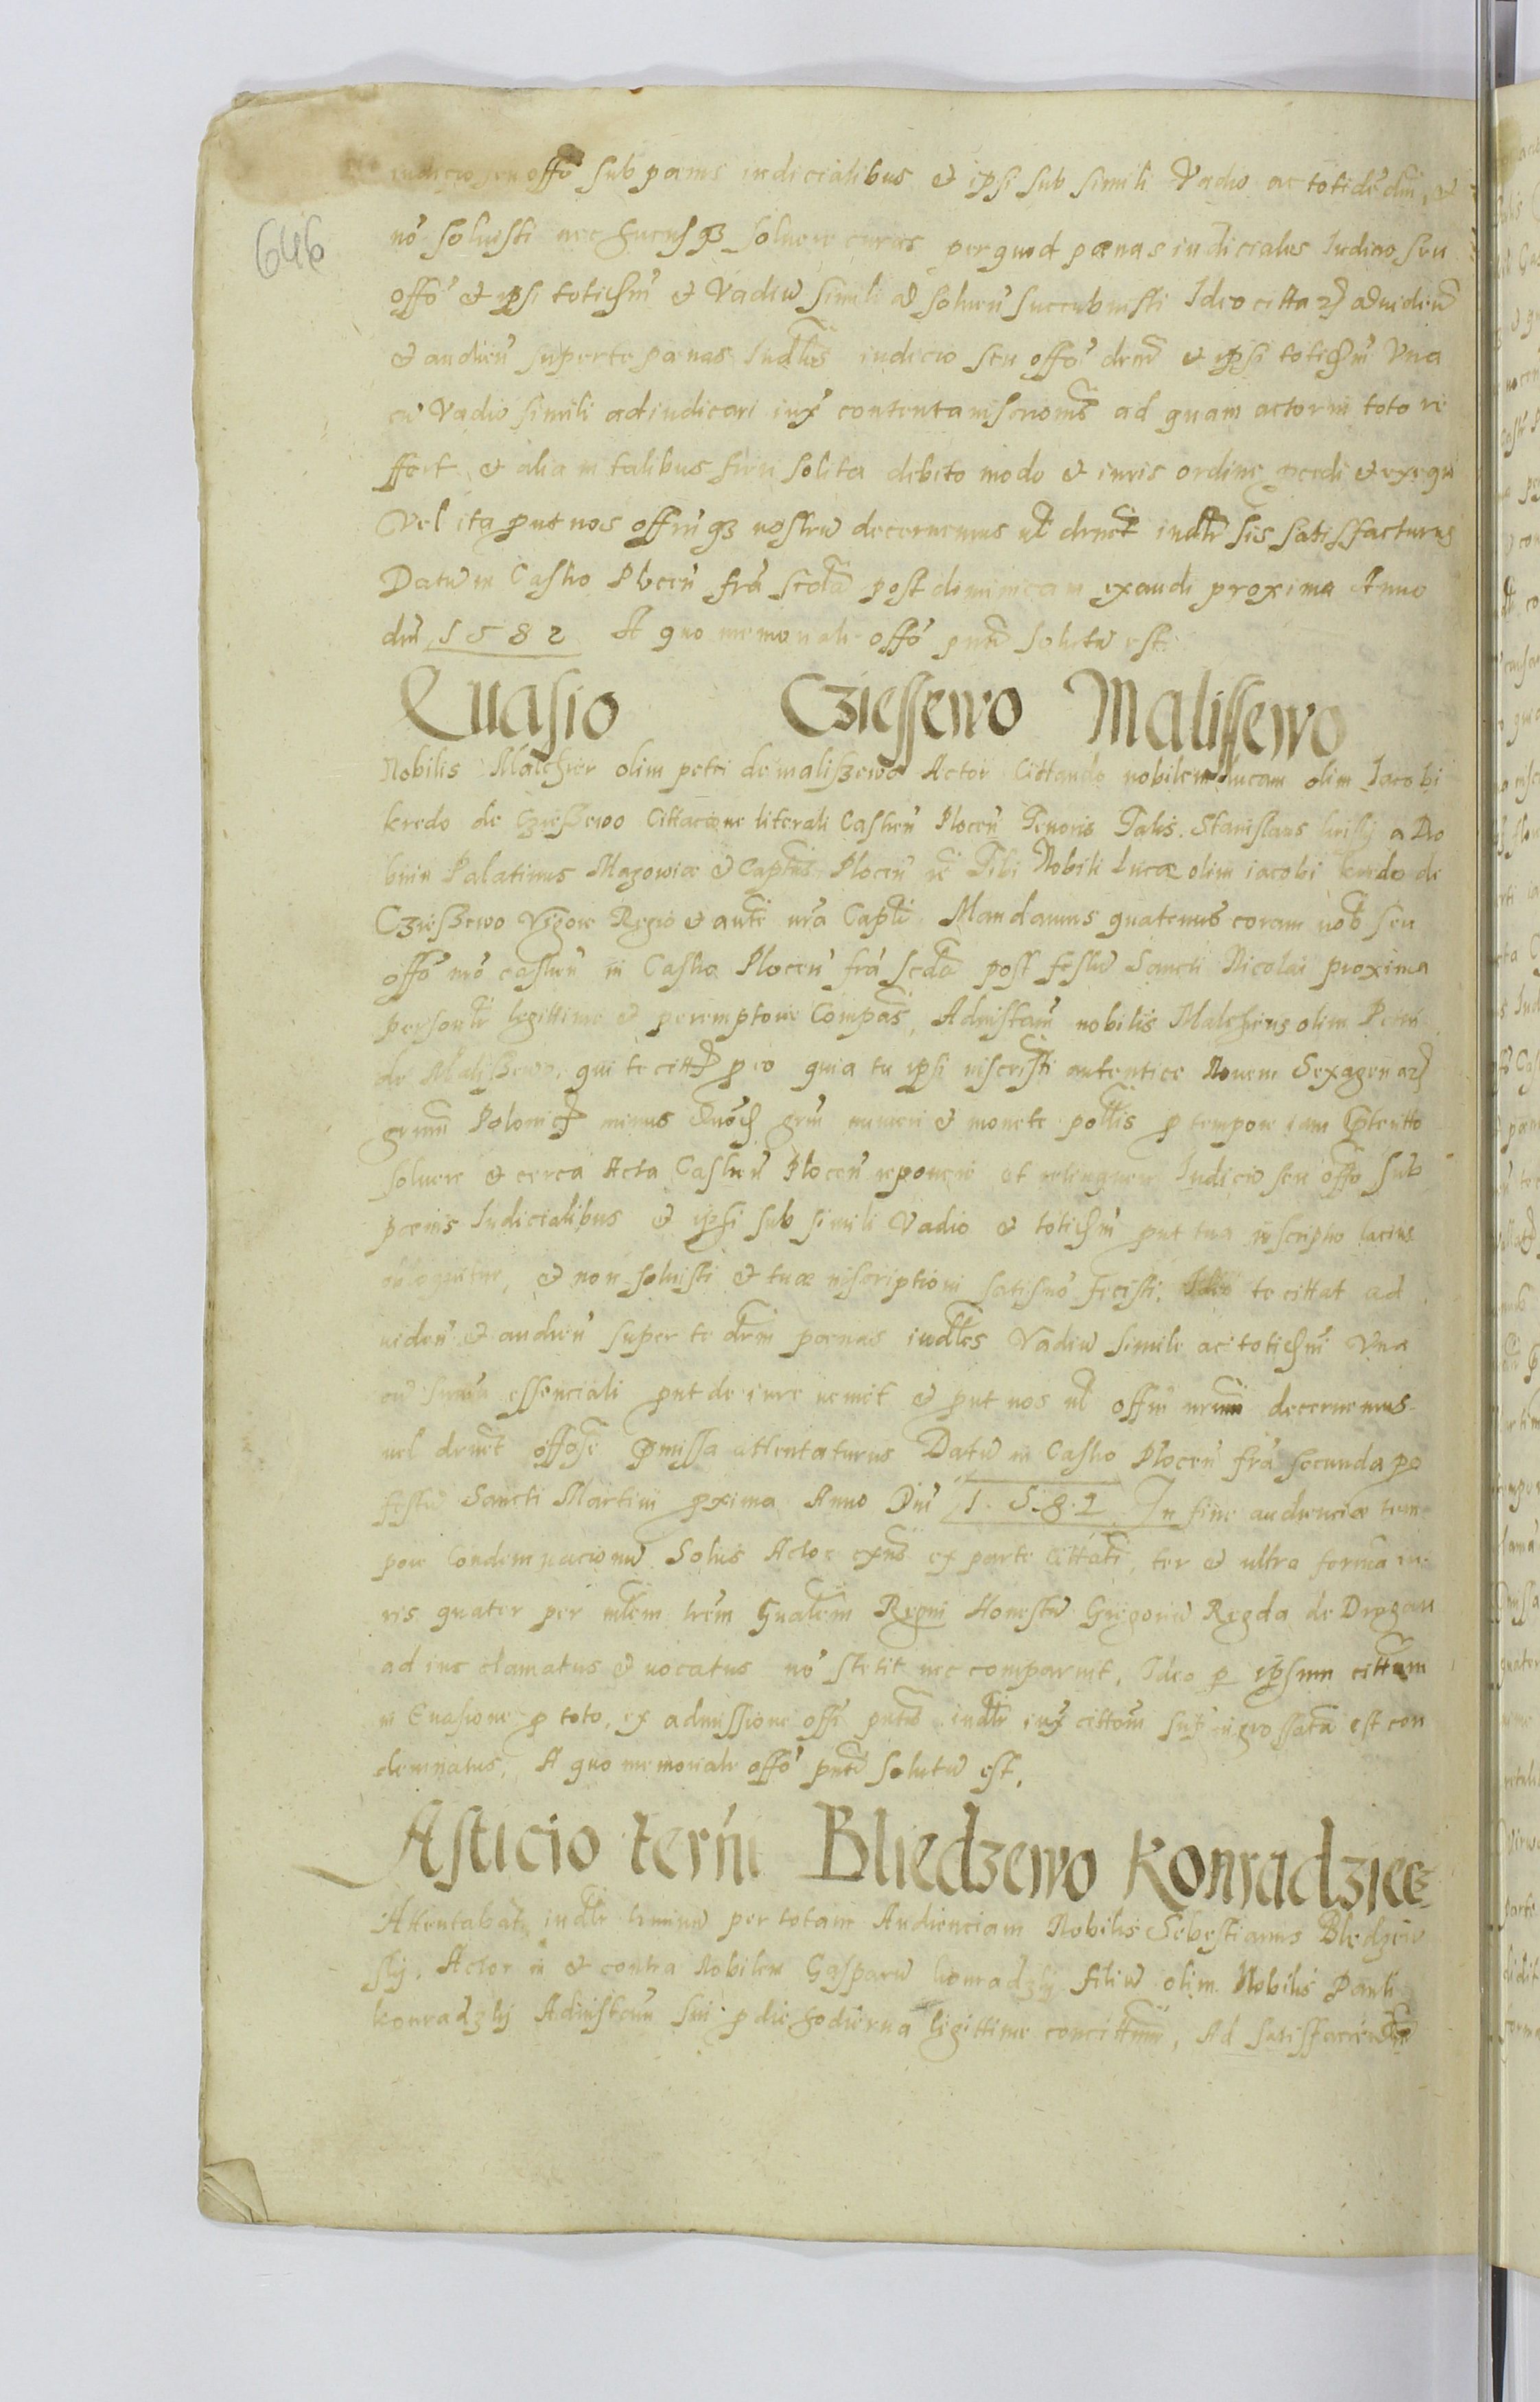 646
iudicio seu offō sub pœnis iudicialibus & ipsi sub simili Vadio ac totidē dm̄ &
nō soluisti nec hucusqȝ soluere curas per quod pœnas iudiciales Iudicio seu
offō & ipsi totidem & Vadiū simili soluen̄ succubuisti Ideo citta aduiden̄
& audien̄ super te pœnas Iudles iudicio seu offō decerni & ipsi totidem Vna
cū Vadio simili adiudicari iux contenta inscriōnis ad quam actor in toto re
ffert & alia in talibus fieri solita debito modo & iuris ordine ꝓcedi & exequi
Vel ita ꝓut nos offmqȝ nostrū decernemus ul decernet iudlr sis satisfacturus
Datū in Castro Plocen̄ fr̄a scdā post dominicam exaudi proxima Anno
dni 1582 A quo memoriale offō pntī solutū est
Euasio Cziessewo Malissewo
Nobilis Malcher olim petri de maliszewo Actor Cittando nobilem lucam olim Iacobi
kredo de Cziessewo Cittacione literali Castren̄ Plocen̄ Tenoris Talis. Stanislaus krissij a Dro
bnin Palatinus Mazowiæ & Captus Plocen̄ &c Tibi Nobili Lucæ olim iacobi kredo de
Cziessewo Vigore Regio & aute nr̄a Capli Mandamus quatenus coram nob seu
offō nrō castren̄ in Castro Plocen̄ fr̄a scdā post festū Sancti Nicolai proxima
personlr legittime & peremptorie Compas, Ad instam̄ nobilis Malcheris olim Petri
de Maliszewo, qui te citt ꝓ eo quia tu ipsi inscristi autentice Nouem Sexagenar
grnn̄ Polonic minus duos grn̄ numeri & monete pollis ꝓ tempore iam p̄teritto
soluere & cerca Acta Castren̄ Plocen̄ reponere et relinquere Iudicio seu offō sub
pœnis Iudicialibus & ipsi sub simili Vadio & totidem ꝓut tua inscriptio lacius
obloquitur, & non soluisti & tuæ inscriptioni satis nō fecisti, Ideo te cittat ad
uiden̄ & audien̄ super te decerni pœnas iudles Vadiū simile ac totidem Vna
cū sum̄a essenciali ꝓut de iure uenit & ꝓut nos ul offm̄ nrum decernemus
uel decernet offōse p̄missa attentaturus Datū in Castro Plocen̄ fr̄a secunda po
festū Sancti Martini ꝓxima Anno Dni 1.5.8.2 In fine audienciæ tem
pore Condemnacionū Solus Actor exn̄s ex parte cittati, ter & ultra forma iu
ris quater per mlem trem Gnalem Regni Honestū Gregoriū Regda de Drogan
ad ius clamatus & uocatus nō stetit nec comparuit, Ideo ꝑ ipsum cittatum
in Euasione ꝓ toto, ex admissione offī pntis iudlr iux cittōm sup̄ ingrossatā est con
demnatus, A quo memoriale offō pntī solutū est,
Asticio termi Bliedzewo Konradziec
Attentabat iudlr terminū per totam Audienciam Nobilis Sebestianus Bledzew
skij, Actor in & contra Nobilem Gasparū konradzkij filiū olim Nobilis Pauli
konradzkij Ad instan̄ sui ꝓ die hodierna legittime concittatum, Ad satisfaciendū